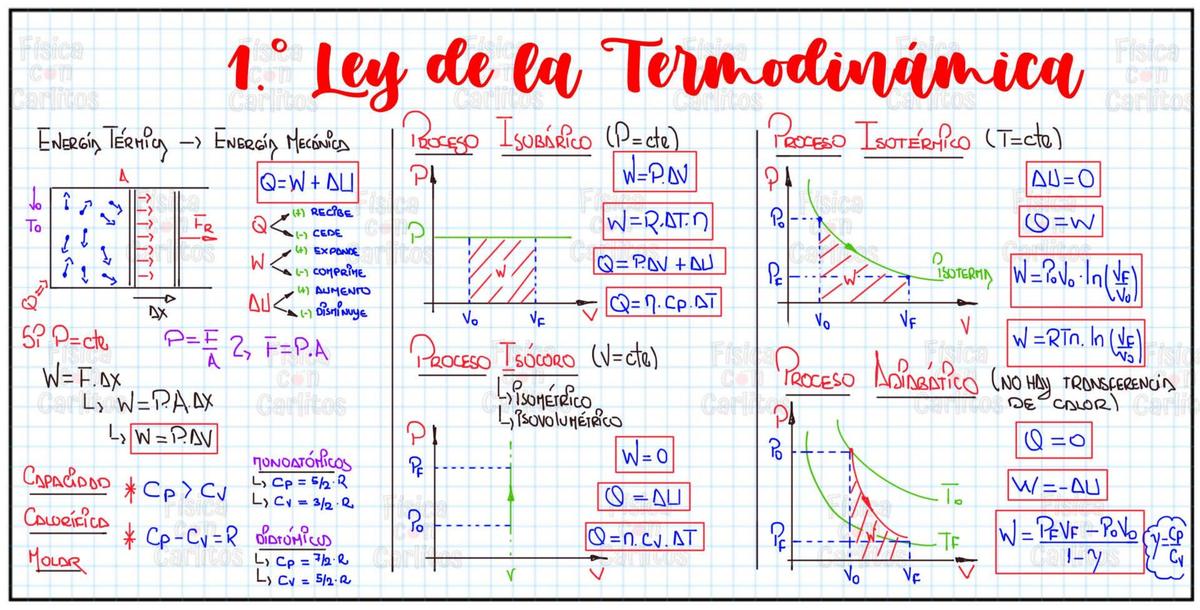 1.° Ley de la Termodinámica
Física con Carlitos
ENERGÍA TÉRMICA → ENERGÍA MECÁNICA
A
Q=W+ΔU
V₀
T₀
F_R
Q
ΔX
Q (+) RECIBE
(-) CEDE
W (+) EXPANDE
(-) COMPRIME
ΔU (+) AUMENTO
(-) DISMINUYE
Si P=cte
P=F/A
F=P.A
W=F.ΔX
↳ W=P.A.ΔX
↳ W=P.ΔV
CAPACIDAD
CALORÍFICA
MOLAR
* Cp > Cv
* Cp-Cv=R
MONOATÓMICOS
↳ Cp = 5/2·R
↳ Cv = 3/2·R
DIATÓMICOS
↳ Cp = 7/2·R
↳ Cv = 5/2·R
PROCESO ISOBÁRICO (P=cte)
P
P
W
V₀
V_F
V
W=P.ΔV
W=R.ΔT.n
Q=P.ΔV+ΔU
Q=n.Cp.ΔT
PROCESO ISÓCORO (V=cte)
↳ ISOMÉTRICO
↳ ISOVOLUMÉTRICO
P
P_F
P₀
V
V
W=0
Q=ΔU
Q=n.Cv.ΔT
PROCESO ISOTÉRMICO (T=cte)
P
P₀
P_F
W
ISOTERMA
V₀
V_F
V
ΔU=0
Q=W
W=P₀V₀·ln(V_F/V₀)
W=RTn.ln(V_F/V₀)
PROCESO ADIABÁTICO (NO HAY TRANSFERENCIA
DE CALOR)
P
P₀
P_F
W
T₀
T_F
V₀
V_F
V
Q=0
W=-ΔU
W=(P_FV_F-P₀V₀)/(1-γ)
γ=Cp/Cv